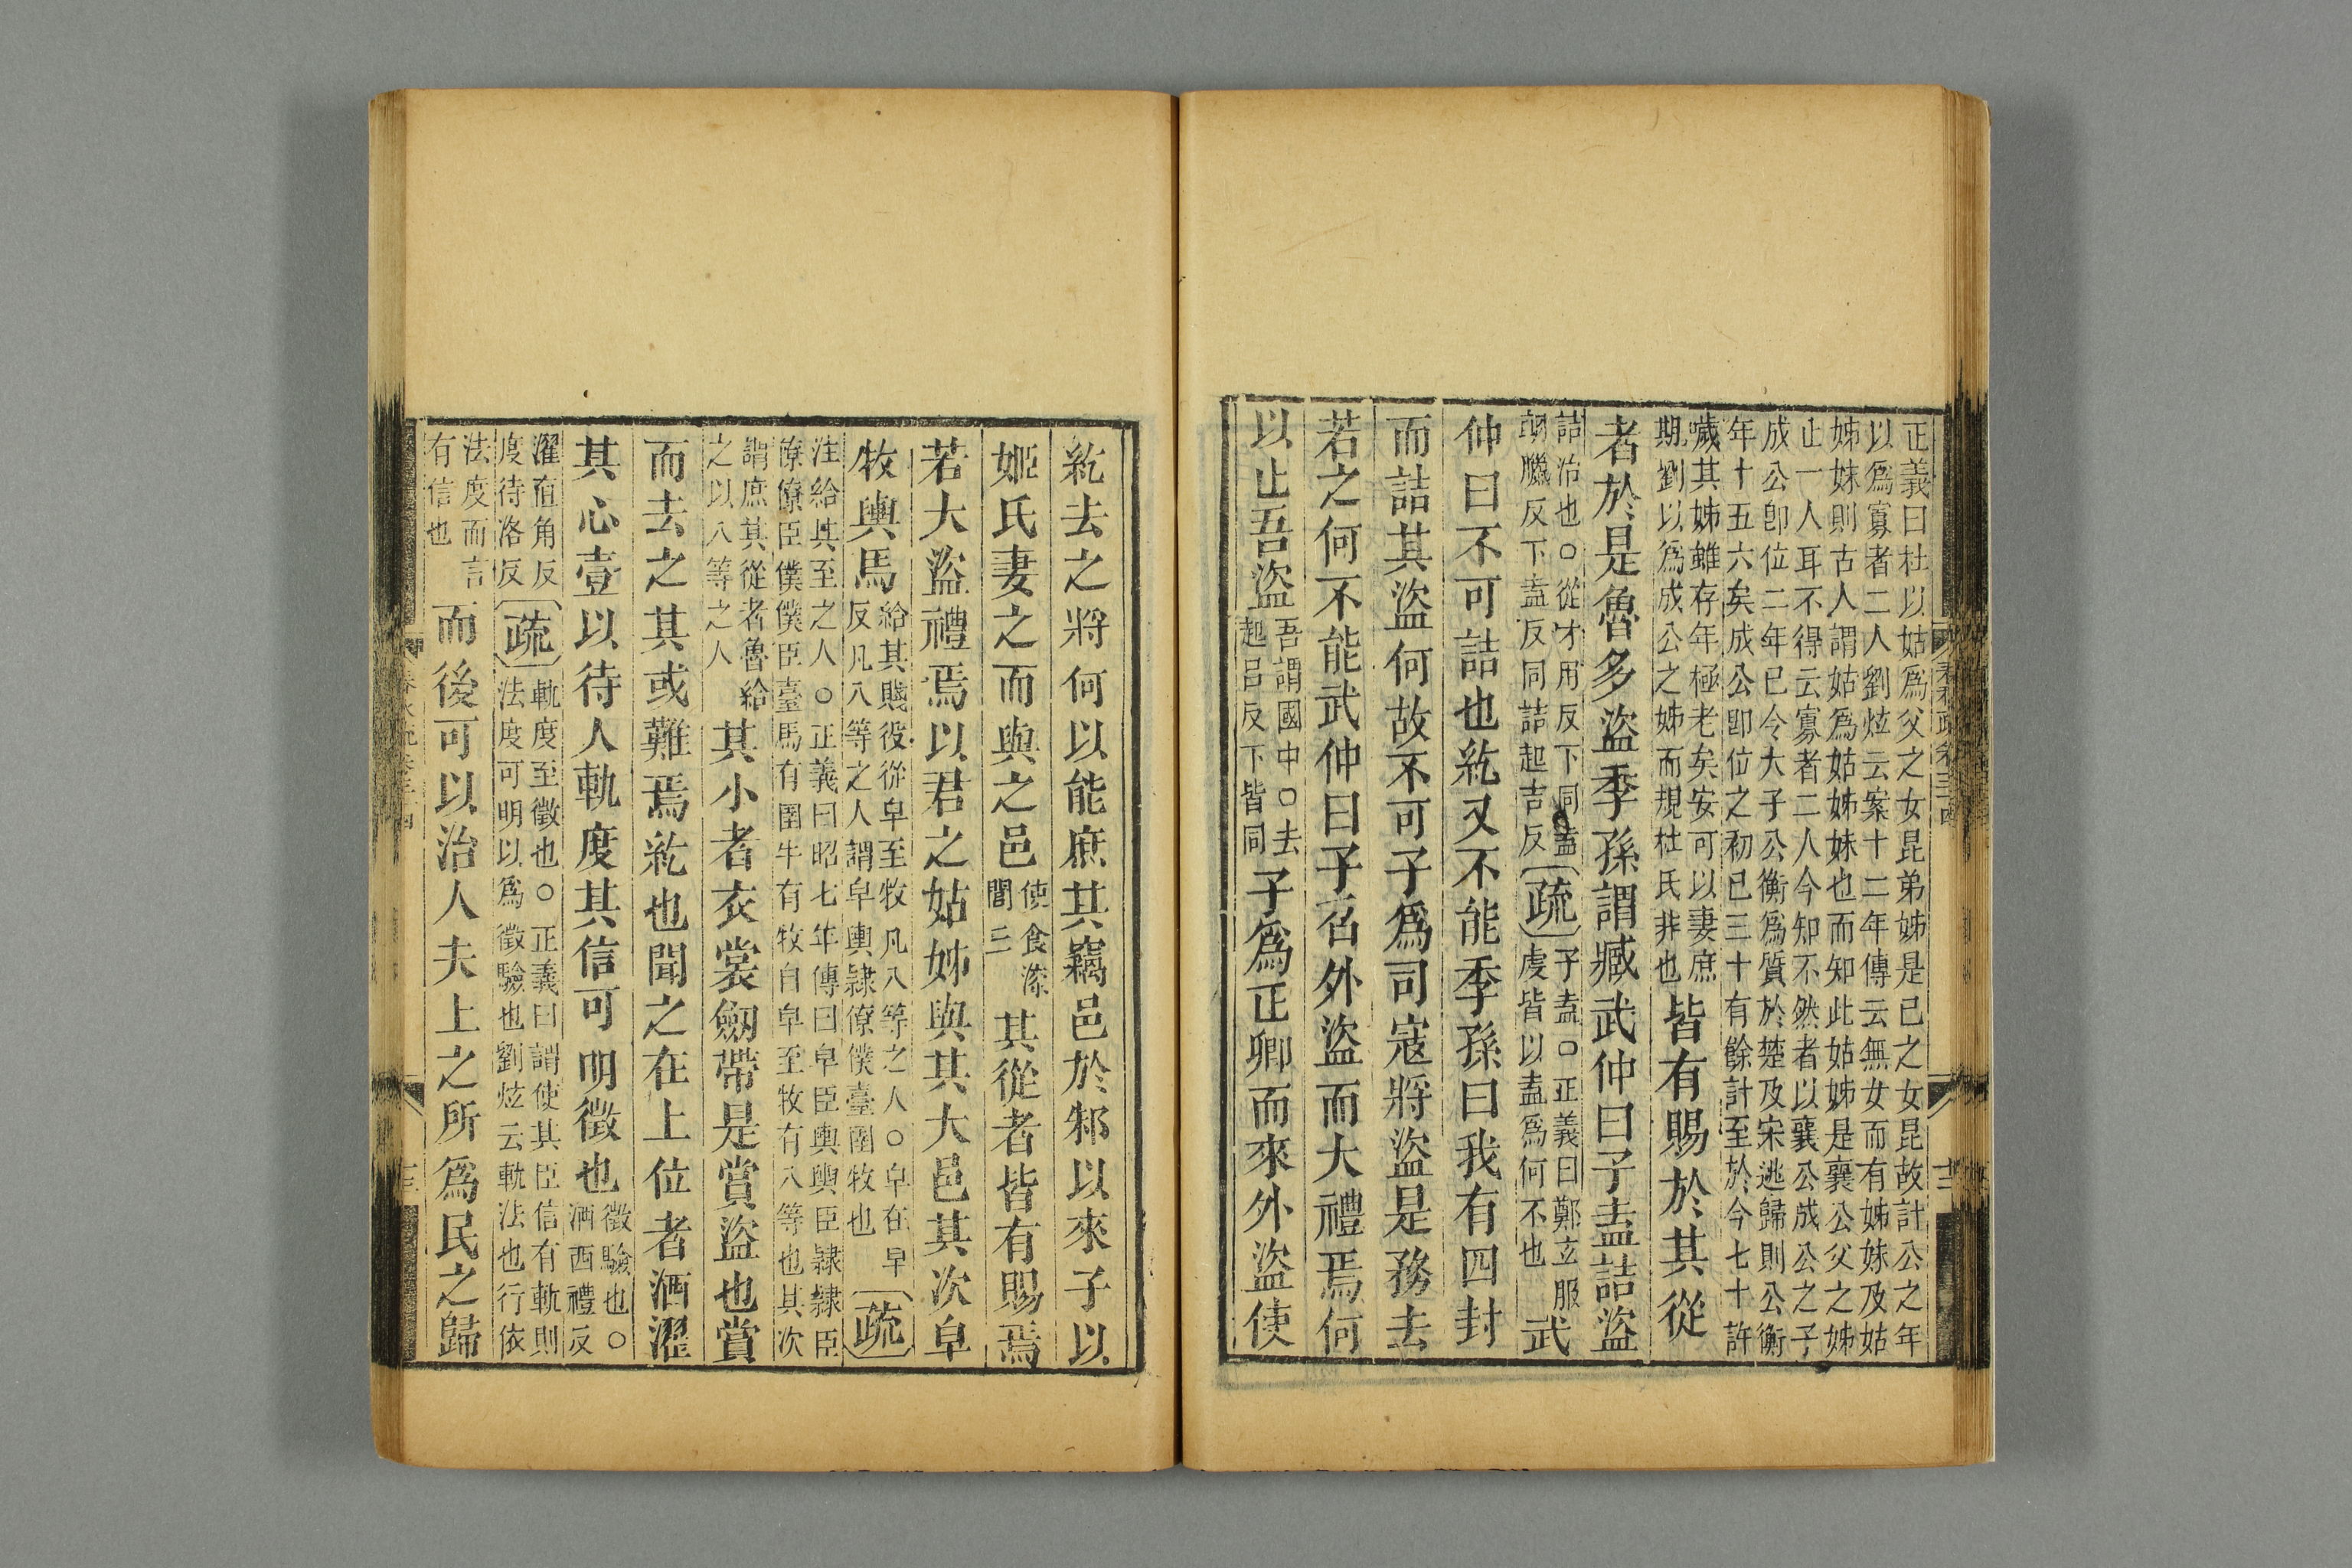 正義曰杜以姑爲父之女昆弟姊是已之女昆故計公之年
以爲寡者二人劉炫云案十二年傳云無女而有姊妹及姑
姊妹則古人謂姑爲姑姊妹也而知此姑姊是襄公父之姊
止一人耳不得云寡者二人今知不然者以襄公成公之子
成公卽位二年已令大子公衡爲質於楚及宋逃歸則公衡
年十五六矣成公卽位之初已三十有餘計至於今七十許
歲其姊雖存年極老矣安可以妻庶
期劉以爲成公之姊而規杜氏非也
皆有賜於其從
者於是魯多盜季孫謂臧武仲曰子盍詰盜
詰治也○從才用反下同盍
胡臘反下盍反同詰起吉反
疏
子盍○正義曰鄭玄服
虔皆以盍爲何不也
武
仲曰不可詰也紇又不能季孫曰我有四封
而詰其盜何故不可子爲司寇將盜是務去
若之何不能武仲曰子召外盜而大禮焉何
以止吾盜
吾謂國中○去
起呂反下皆同
子爲正卿而來外盜使
紇去之將何以能庶其竊邑於邾以來子以
姬氏妻之而與之邑
使食漆
閭三
其從者皆有賜焉
若大盜禮焉以君之姑姊與其大邑其次皁
牧輿馬
給其賤役從皁至牧凡八等之人○皁在早
反凡八等之人謂皁輿隸僚僕臺圉牧也
疏
注給其至之人○正義曰昭七年傳曰皁臣輿輿臣隸隸臣
僚僚臣僕僕臣臺馬有圉牛有牧自皁至牧有八等也其次
謂庶其從者魯給
之以八等之人
其小者衣裳劒帶是賞盜也賞
而去之其或難焉紇也聞之在上位者洒濯
其心壹以待人軌度其信可明徵也
徵驗也○
洒西禮反
濯直角反
度待洛反
疏
軌度至徵也○正義曰謂使其臣信有軌則
法度可明以爲徵驗也劉炫云軌法也行依
法度而言
有信也
而後可以治人夫上之所爲民之歸